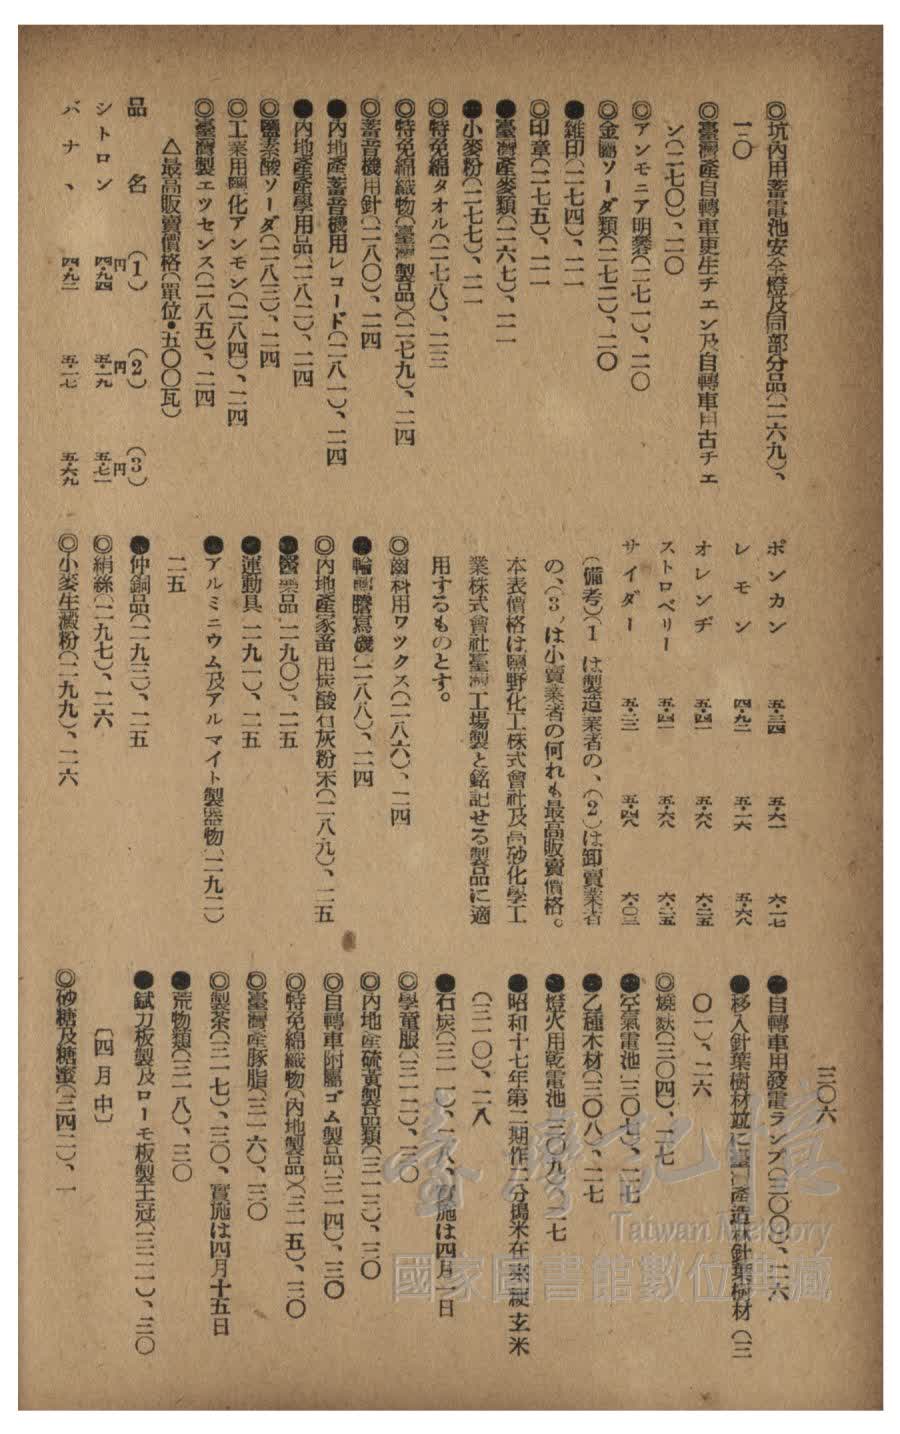 三〇六
◎坑內用蓄電池安全燈及同部分品(二六九)、
二〇
◎臺灣產自轉車更生チエン及自轉車用古チエ
ン(二七〇)、二〇
◎アンモニア明礬(二七一)、二〇
◎金屬ソーダ類(二七二)、二〇
●雜印(二七四)、二一
◎印章(二七五)、二一
●臺灣產麥類(二六七)、二一
●小麥粉(二七七)、二一
◎特免綿タオル(二七八)、二三
◎特免綿織物(臺灣製品)(二七九)、二四
◎蓄音機用針(二八〇)、二四
●內地產蓄音機用レコード(二八一)、二四
●內地產學用品(二八二)、二四
◎鹽素酸ソーダ(二八三)、二四
◎工業用鹽化アンモン(二八四)、二四
◎臺灣製エツセンス(二八五)、二四
△最高販賣價格(單位・五〇〇瓦)
品名 (1) (2) (3)
シトロン 四・九四円 五・一九円 五・七一円
バナヽ 四・九二 五・一七 五・六九
ポンカン 五・三四 五・六一 六・一七
レモン 四・九二 五・一六 五・六八
オレンヂ 五・四一 五・六八 六・二五
ストロベリー 五・四一 五・六八 六・二五
サイダー 五・二二 五・四八 六・〇三
(備考)(1)は製造業者の、(2)は卸賣業者
の、(3)は小賣業者の何れも最高販賣價格。
本表價格は鹽野化工株式會社及高砂化學工
業株式會社臺灣工場製と銘記せる製品に適
用するものとす。
◎齒科用ワツクス(二八六)、二四
●輪轉謄寫機(二八八)、二四
◎內地產家畜用炭酸石灰粉末(二八九)、二五
●醫藥品(二九〇)、二五
●運動具(二九一)、二五
●アルミニウム及アルマイト製器物(二九二)
二五
●伸銅品(二九三)、二五
◎絹絲(二九七)、二六
◎小麥生澱粉(二九九)、二六
●自轉車用發電ランプ(三〇〇)、二六
●移入針葉樹材竝に臺灣產造林針葉樹材(三
〇一)、二六
◎燒麩(三〇四)、二七
●空氣電池(三〇七)、二七
●乙種木材(三〇八)、二七
●燈火用乾電池(三〇九)、二七
●昭和十七年第二期作二分搗米在來粳玄米
(三一〇)、二八
●石炭(三一一)、二八、實施は四月一日
◎學童服(三一二)、三〇
◎內地產硫黃製品類(三一三)、三〇
◎自轉車附屬ゴム製品(三一四)、三〇
◎特免綿織物(內地製品)(三一五)、三〇
◎臺灣產豚脂(三一六)、三〇
◎製茶(三一七)、三〇、實施は四月十五日
●荒物類(三一八)、三〇
●鋱力板製及ローモ板製王冠(三二一)、三〇
〔四月中〕
◎砂糖及糖蜜(三四二)、一
臺灣記憶
Taiwan Memory
國家圖書館數位典藏